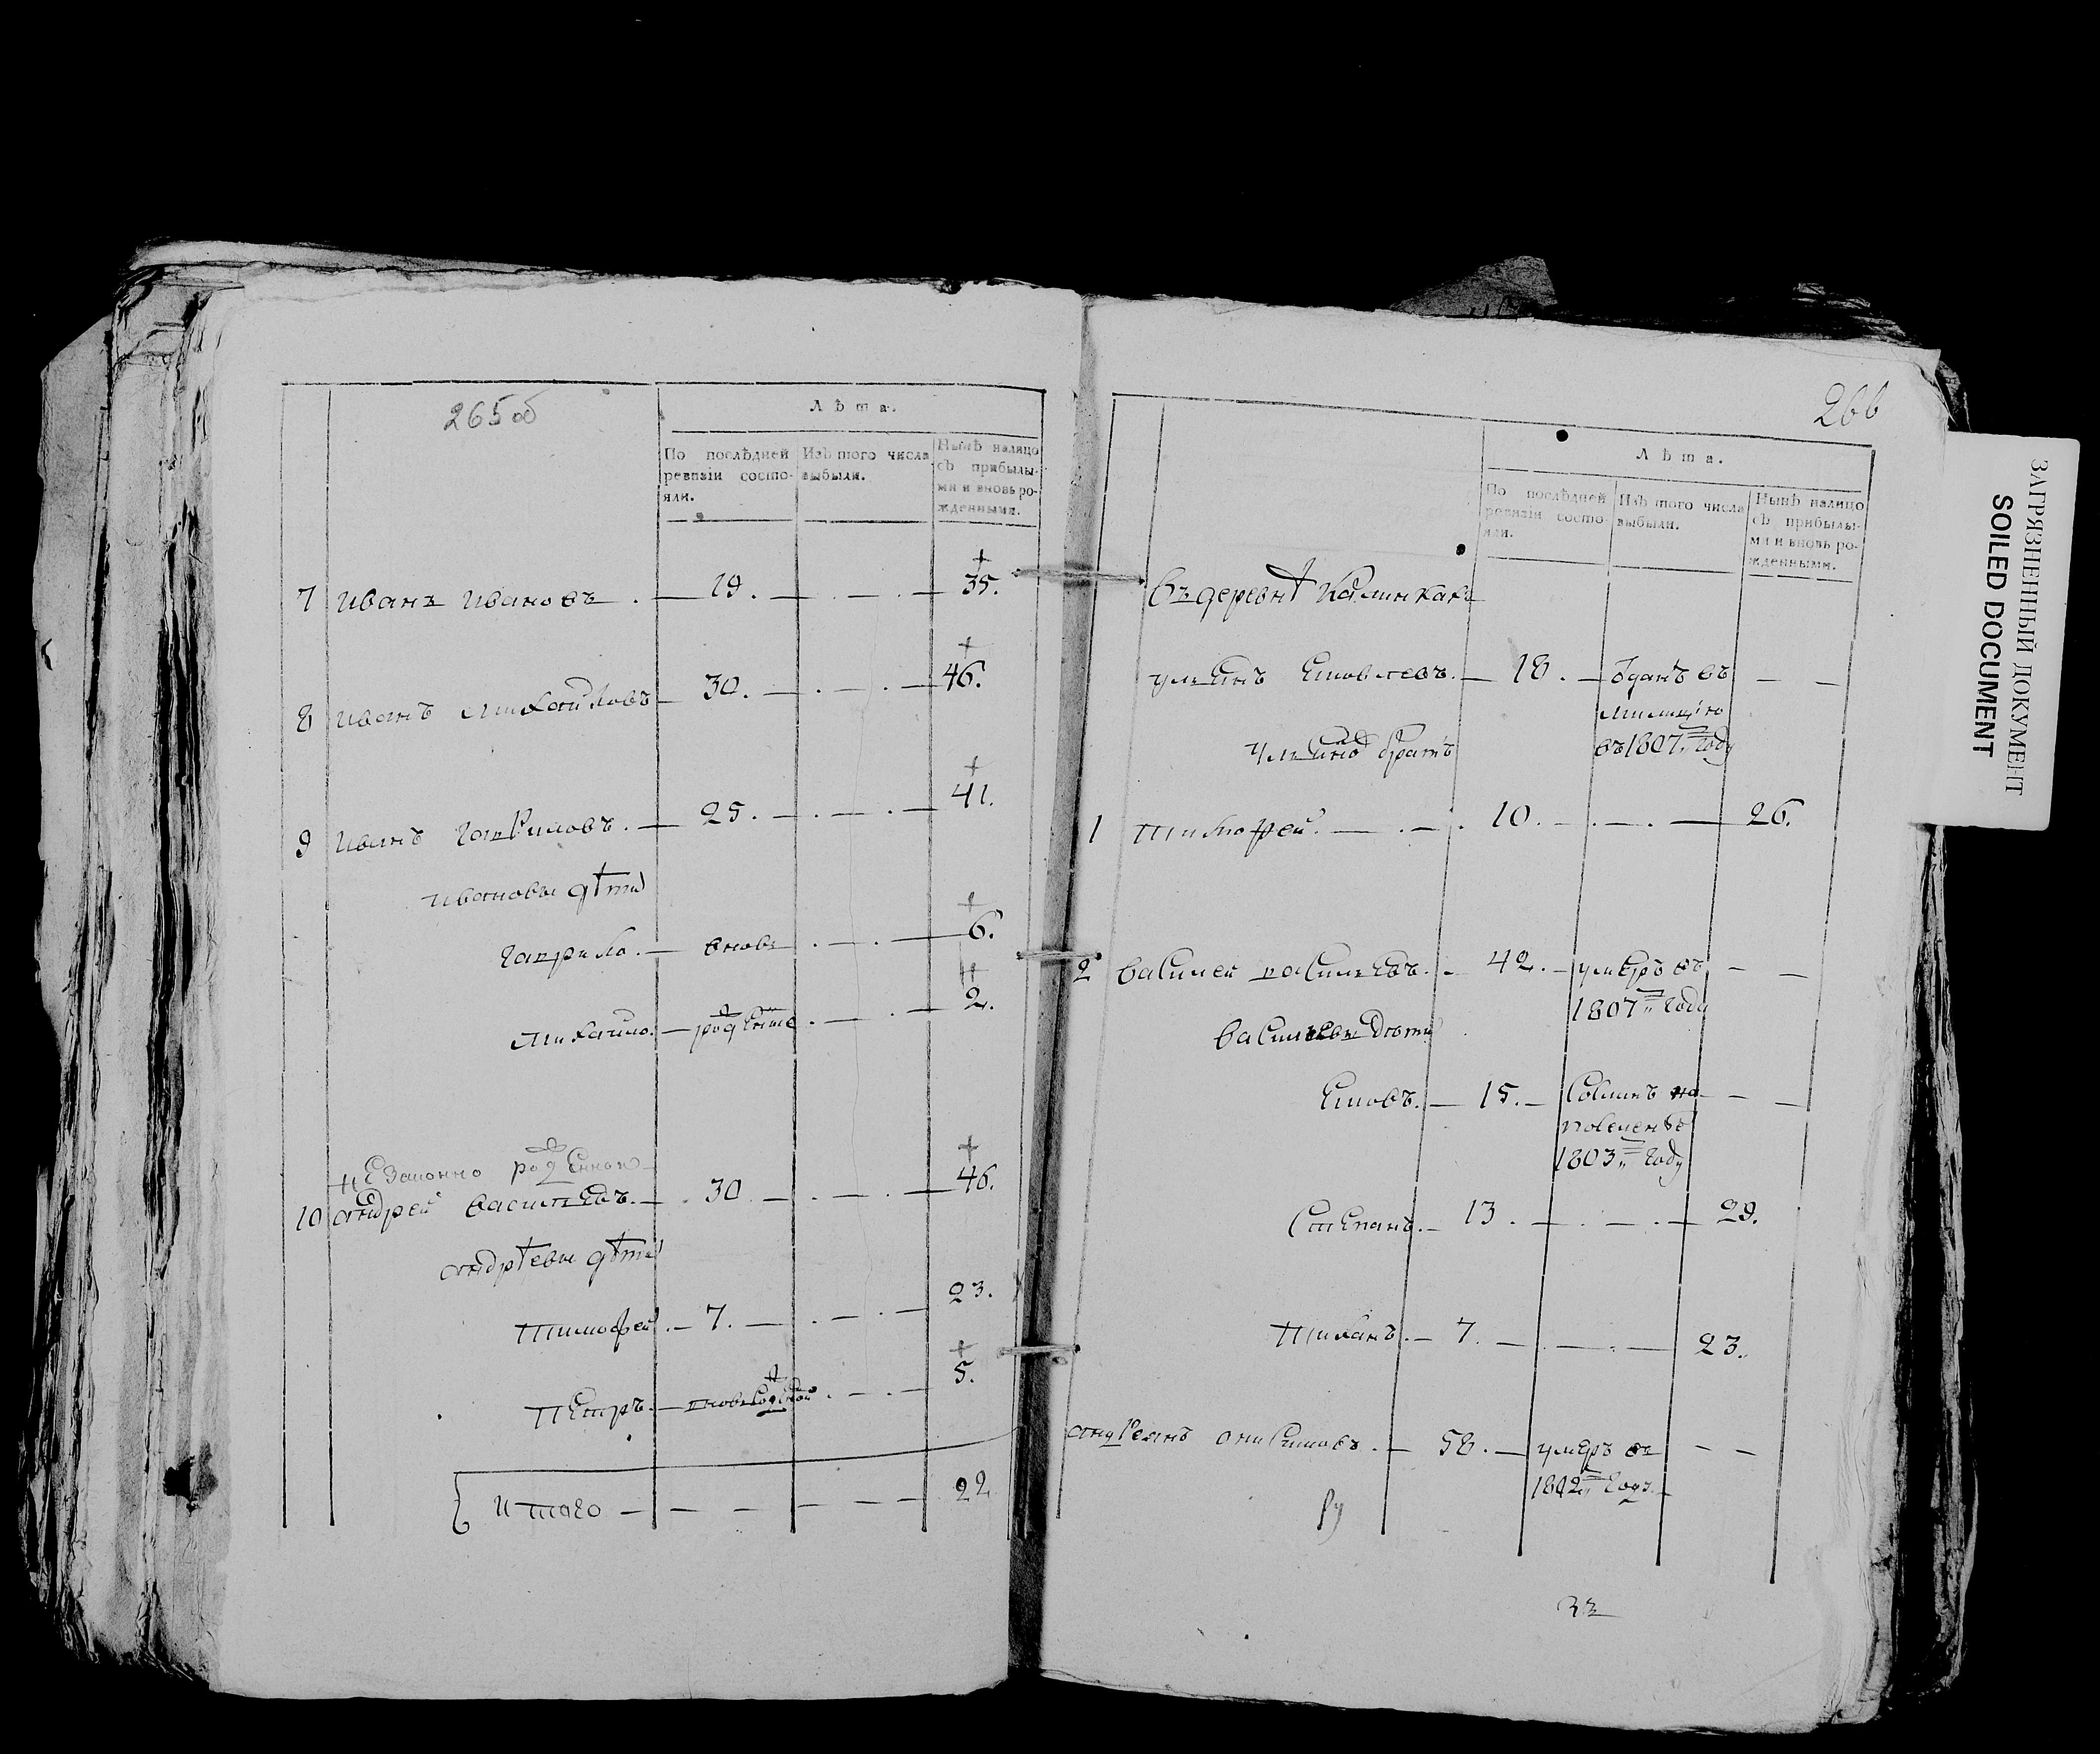 265 об
Лѣта.
По послѣдней ревизіи состояли.
Изъ того числа выбыли.
Нынѣ налицо съ прибылыми и вновь рожденными.
7 иванъ ивановъ. — 19. — . — . — + 35.
8 иванъ михайловъ — 30. — . — . — + 46.
9 иванъ гавриловъ. — 25. — . — . — + 41.
ивановы дѣти
гаврило. — вновь . — . — + 6.
михайло. — рожденые . — . — 2.
незаконно рожденной
10 андрей васильевъ. — 30 — . — . — + 46.
андрѣевы дѣти
тимофей. — 7. — . — . — 23.
петръ. — . — . — + 5.
итого — — — — — 22
266
Лѣта.
По послѣдней ревизіи состояли.
Изъ того числа выбыли.
Нынѣ налицо съ прибылыми и вновь рожденными.
въ деревнѣ
— 18. — отданъ въ — —
милицію
въ 1807м году
братъ
1 тимофей. — . — . 10. — . — . — 26.
2 василей васильевъ. — 42. — умеръ въ — —
1807м году
васильевы дѣти
— 15. — сосланъ на — —
поселенье
1803м году
степанъ. — 13. — . — . — 29.
тиханъ. — 7. — . — . — 23.
андреянъ онисимовъ. — 58. — умеръ въ — —
1812м году
ЗАГРЯЗНЕННЫЙ ДОКУМЕНТ
SOILED DOCUMENT